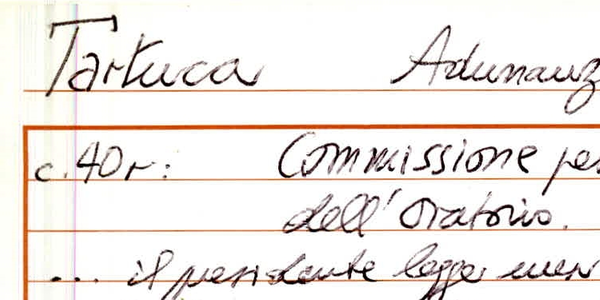 Tartuca Adunanz
c. 40r: Commissione per
dell'Oratorio.
... il presidente legge